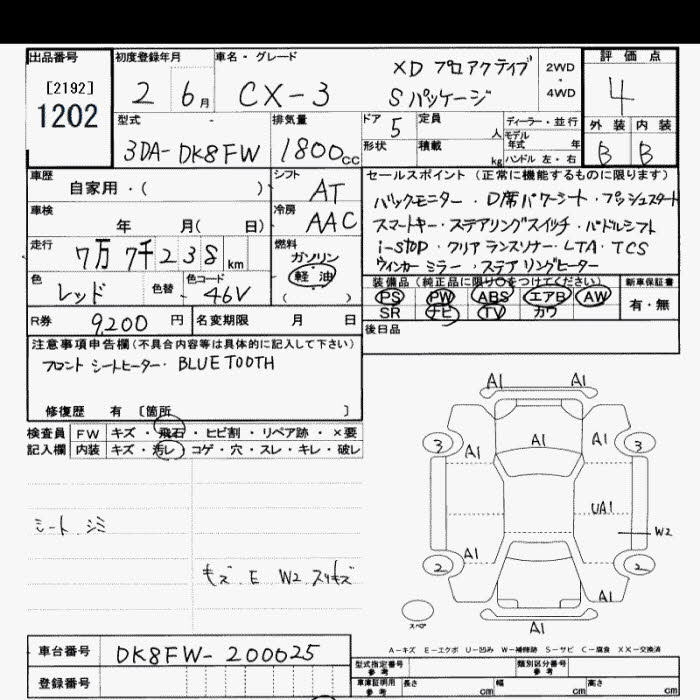 出品番号
[2192]
1202
初度登録年月
2 6月
車名・グレード
CX-3
XD プロアクティブ
Sパッケージ
2WD
・
4WD
評価点
4
外装 内装
B B
型式
3DA-DK8FW
排気量
1800cc
ドア 5
形状
定員 人
積載 kg
ディーラー・並行
モデル
年式 年
ハンドル 左・右
車歴
自家用・( )
シフト
AT
車検
年 月( 日)
冷房
AAC
走行
7万 7千 2 3 8 km
燃料
ガソリン
軽油
( )
色
レッド
色替
色コード
46V
セールスポイント (正常に機能するものに限ります)
バックモニター・D席パワーシート・プッシュスタート
スマートキー・ステアリングスイッチ・パドルシフト
i-stop・クリアランスソナー・LTA・TCS
ウィンカーミラー・ステアリングヒーター
装備品 (純正品に限り○をつけてください)
PS PW ABS エアB AW
SR ナビ TV カワ
新車保証書
有・無
後日品
R券 9,200 円
名変期限 月 日
注意事項申告欄 (不具合内容等は具体的に記入して下さい)
フロントシートヒーター・BLUETOOTH
修復歴 有 〔箇所 〕
検査員
記入欄
FW キズ・飛石・ヒビ割・リペア跡・×要
内装 キズ・汚レ・コゲ・穴・スレ・キレ・破レ
シート シミ
キズ E W2 スリキズ
A1 A1
3 A1 A1 A1 3
UA1
W2
2 A1 2
A1
A1
スペア
A-キズ E-エクボ U-凹み W-補修跡 S-サビ C-腐食 XX-交換済
車台番号 DK8FW-200025
登録番号
型式指定番号
参考
類別区分番号
参考
車庫証明用
参考
長さ cm
幅 cm
高さ cm